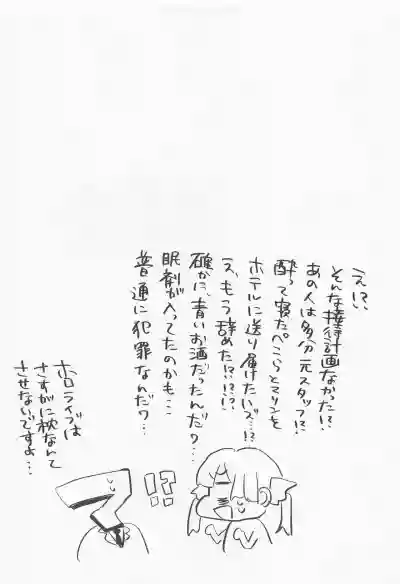 えっ!?
そんな接待計画なかった!?
あの人は多分元スタッフ!?
酔って寝たぺこらとマリンを
ホテルに送り届けたハズ…!?
え、もう辞めた!?!?!?
確かに、青いお酒だったんだワ…
眠剤が入ってたのかも…
普通に犯罪なんだワ…
ホロライブは
さすがに枕なんて
させないですよ…
マ
!?